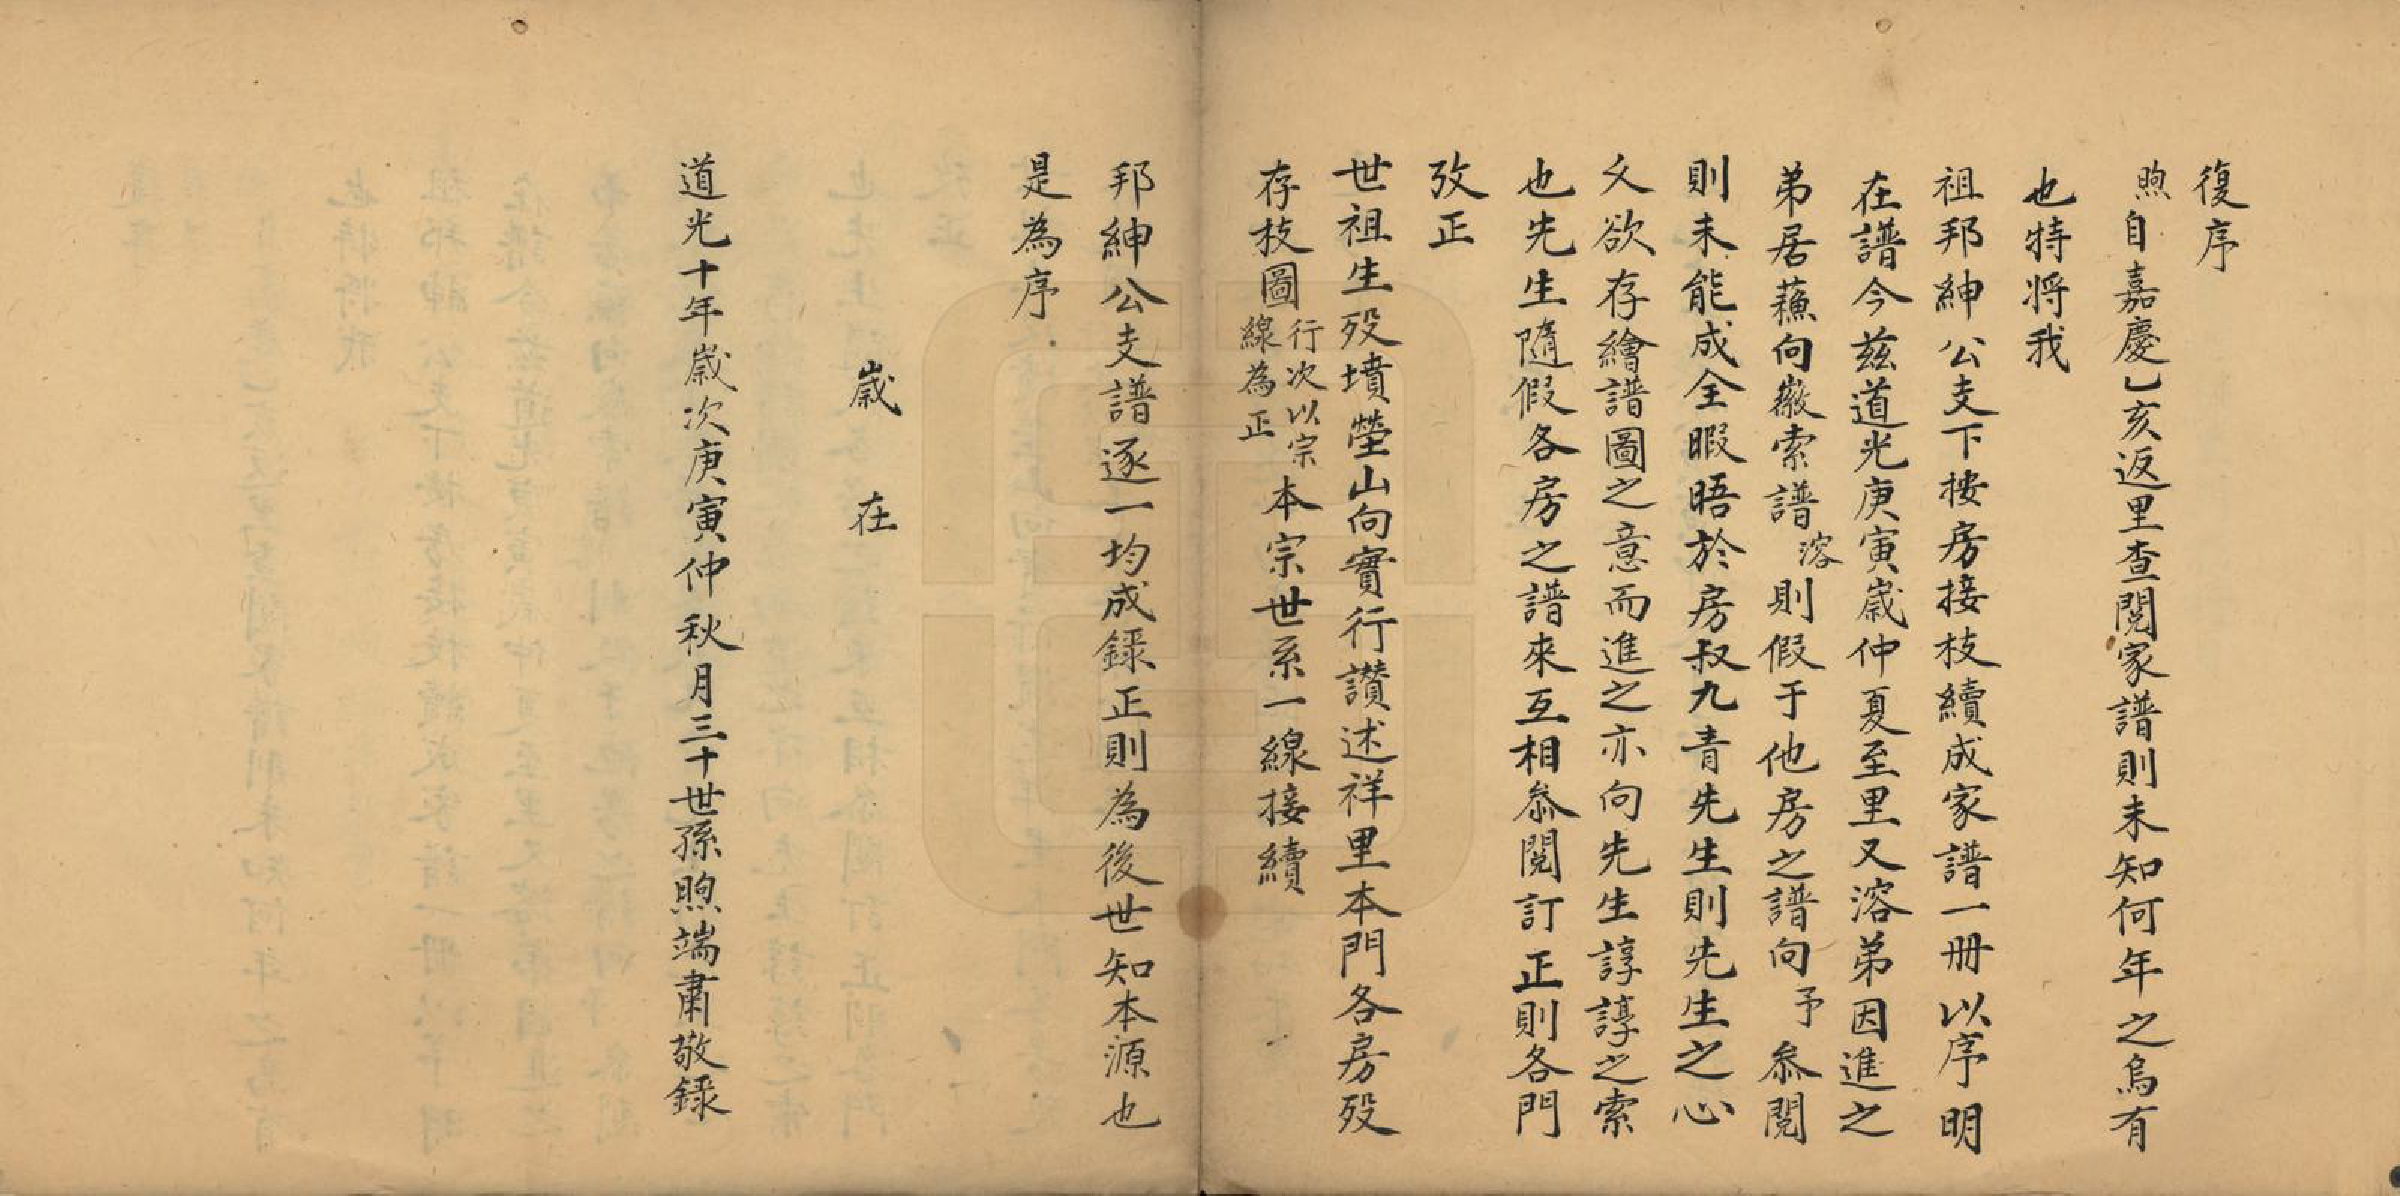 復序
煦自嘉慶乙亥返里查閱家譜則未知何年之烏有
也特將我
祖邦紳公支下接房接枝續成家譜一冊以序明
在譜今茲道光庚寅歲仲夏至里又溶弟因進之
弟居蘓向徽索譜溶則假于他房之譜向予叅閱
則未能成全暇晤於房叔九青先生則先生之心
乆欲存繪譜圖之意而進之亦向先生諄諄之索
也先生隨假各房之譜來互相叅閱訂正則各門
攷正
世祖生歿墳塋山向實行讃述祥里本門各房歿
存枝圖行次以宗線為正本宗世系一線接續
邦紳公支譜逐一均成録正則為後世知本源也
是為序
歲在
道光十年歲次庚寅仲秋月三十世孫煦端肅敬録